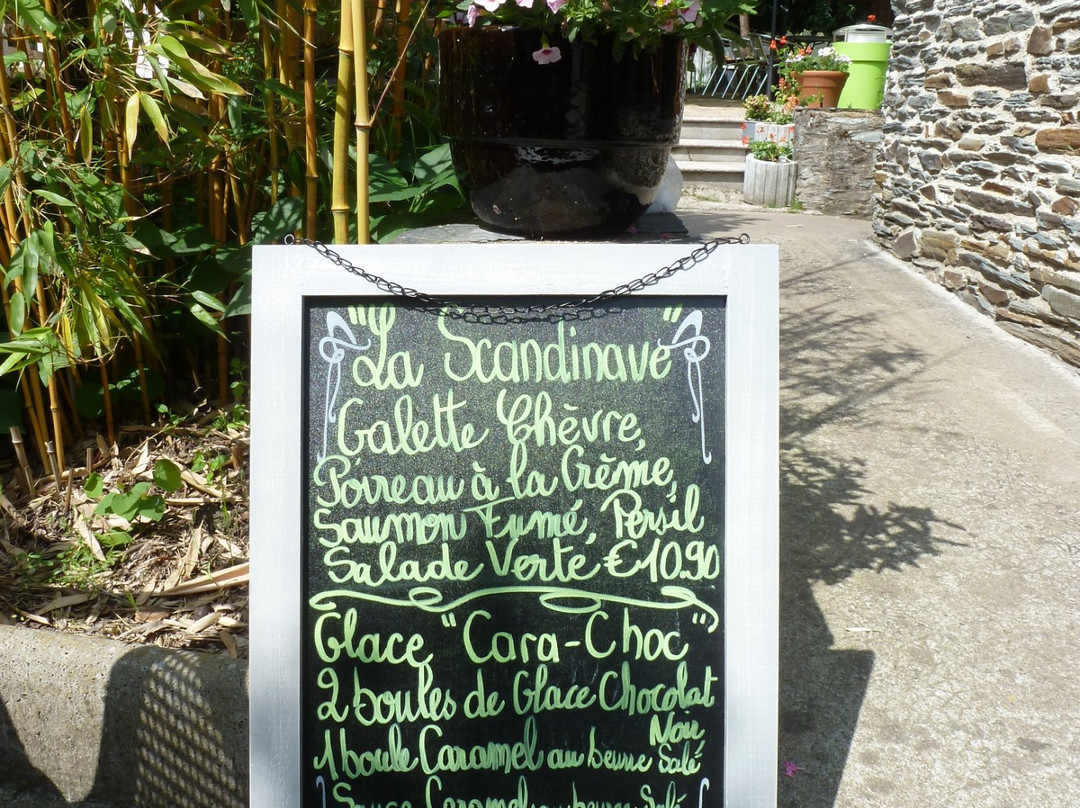 "La Scandinave"
Galette Chèvre,
Poireau à la Crème,
Saumon Fumé, Persil
Salade Verte €10.90
Glace "Cara-Choc"
2 boules de Glace Chocolat
Noir
1 boule Caramel au beurre Salé
Sauce Caramel au beurre Salé